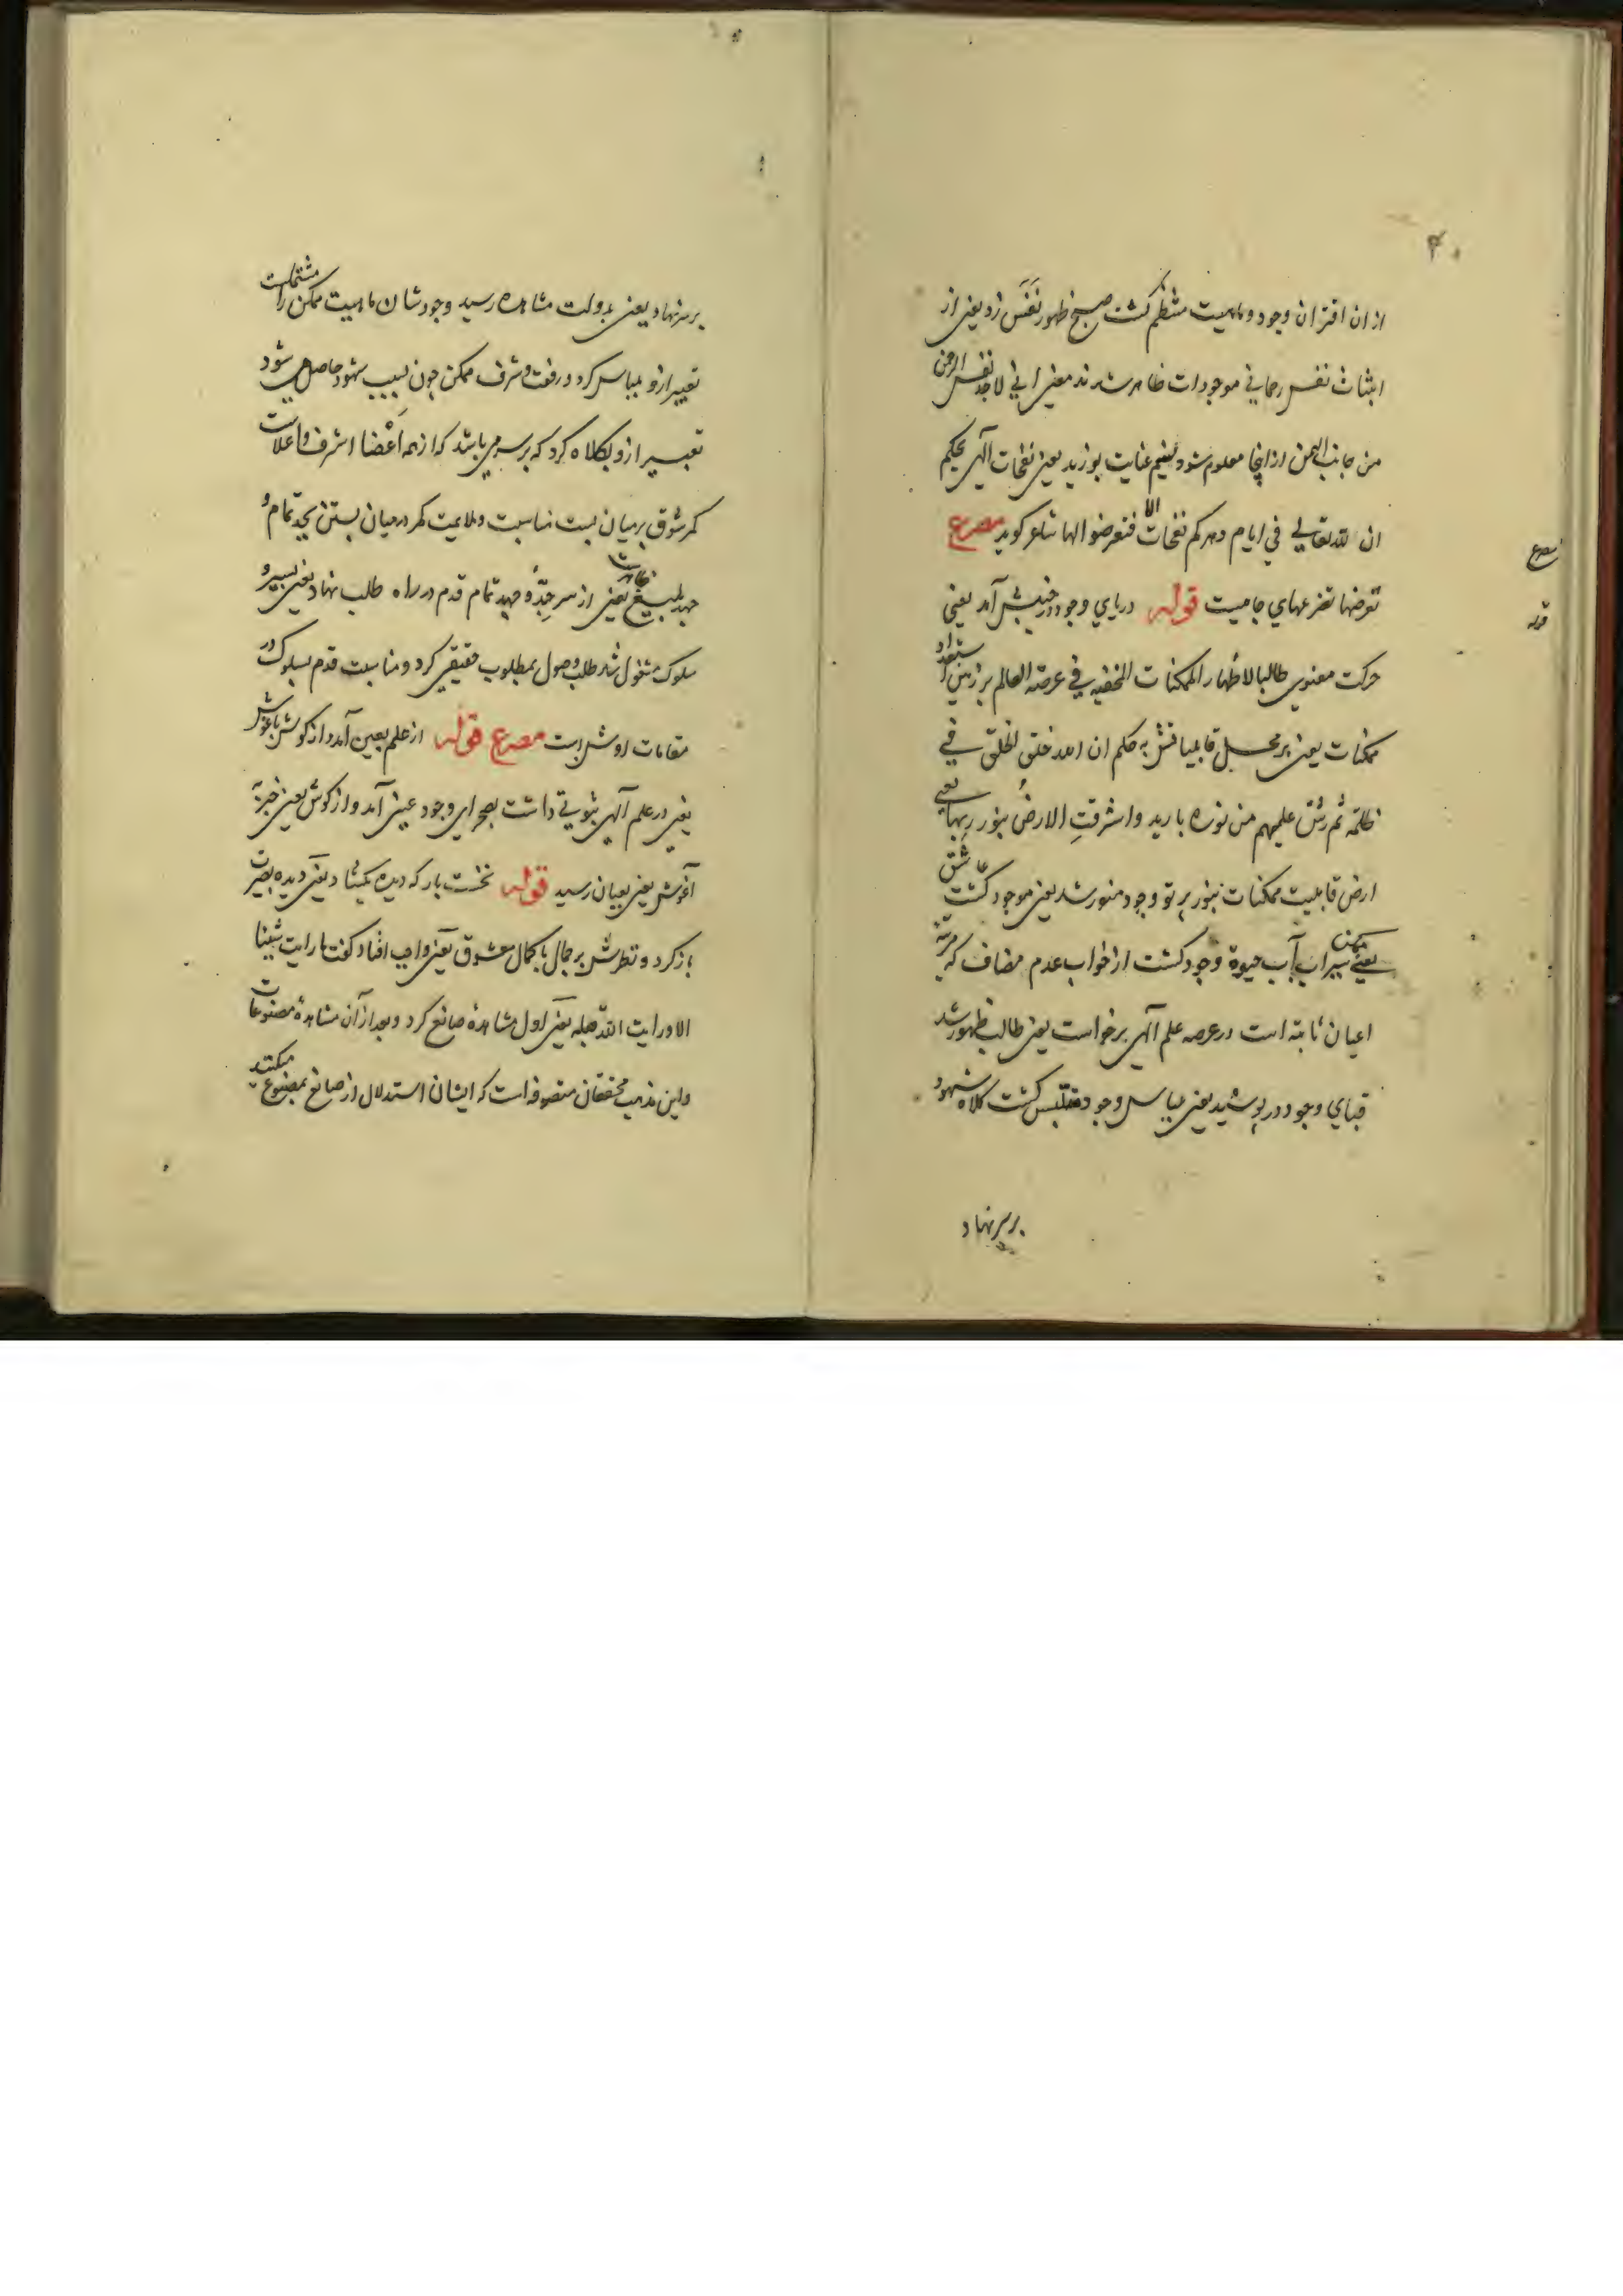 ۴۰
از ان اقتران وجود و ماهیت منتظم کشت صبح ظهور نَفَس زد یعنی از
انبثاث نفس رحمانی موجودات ظاهر شدند معنی انی لاجد نفس الرحمن
من جانب الیمن از اینجا معلوم شود نسیم عنایت بوزید یعنی نفحات الهی بحکم
ان لله تعالی فی ایام دهرکم نفحات الا فتعرضوا لها شاعر کوید مصرع
مصرع
تعرضها تضرعهای جامیست قوله دریای وجود در جنبش آمد یعنی
قوله
حرکت معنوی طالبا لاظهار الممکنات المخفیه فی عرصه العالم بر زمین استعداد
ممکنات یعنی بر محل قابلیاتش به حکم ان الله خلق الخلق فی
ظلمه ثم رش علیهم من نوره بارید و اشرقتِ الارضُ بنور ربها یعنی
ارض قابلیت ممکنات بنور پرتو وجود منور شد یعنی موجود کشت عاشق
یعنی ممکن سیراب آب حیوة وجود کشت از خواب عدم مضاف که مرتبه
اعیان ثابته است در عرصه علم الهی برخواست یعنی طالب ظهور شد
قبای وجود در پوشید یعنی بلباس وجود متلبس کشت کلاه شهود
برسر نهاد
بر سر نهاد یعنی بدولت مشاهده رسید وجود شان ماهیت ممکن را مشتملست
تعبیر ازو بلباس کرد و رفعت و شرف ممکن چون بسبب شهود حاصل می شود
تعبیر ازو بکلاه کرد که بر سر می باشد که از همه اَعْضا اشرف و اعلاست
کمر شوق بر میان بست مناسبت و ملایمت کمر در میان بستن بجد تمام و
جهد بلیغ ظاهرست یعنی از سر جِدّ و جهد تمام قدم در راه طلب نهاد یعنی بسیر و
سلوک مشغول شد طلب وصول بمطلوب حقیقی کرد و مناسبت قدم بسلوک در
مقامات روشن است مصرع قوله از علم بعین آمد و از کوش باغوش
یعنی در علم الهی ثبوتی داشت بصحرای وجود عینی آمد و از کوش یعنی خبر به
آغوش یعنی بعیان رسید قوله نخست بار که دیده بکشاد یعنی دیده بصیرت
باز کرد و نظرش بر جمال با کمال معشوق یعنی واجب افتاد کفت ما رایت شیئا
الا ورایت الله قبله یعنی اول مشاهدهٔ صانع کرد و بعد از آن مشاهدهٔ مصنوعات
و این مذهب محققان متصوفه است که ایشان استدلال از صانع بمصنوع میکنند